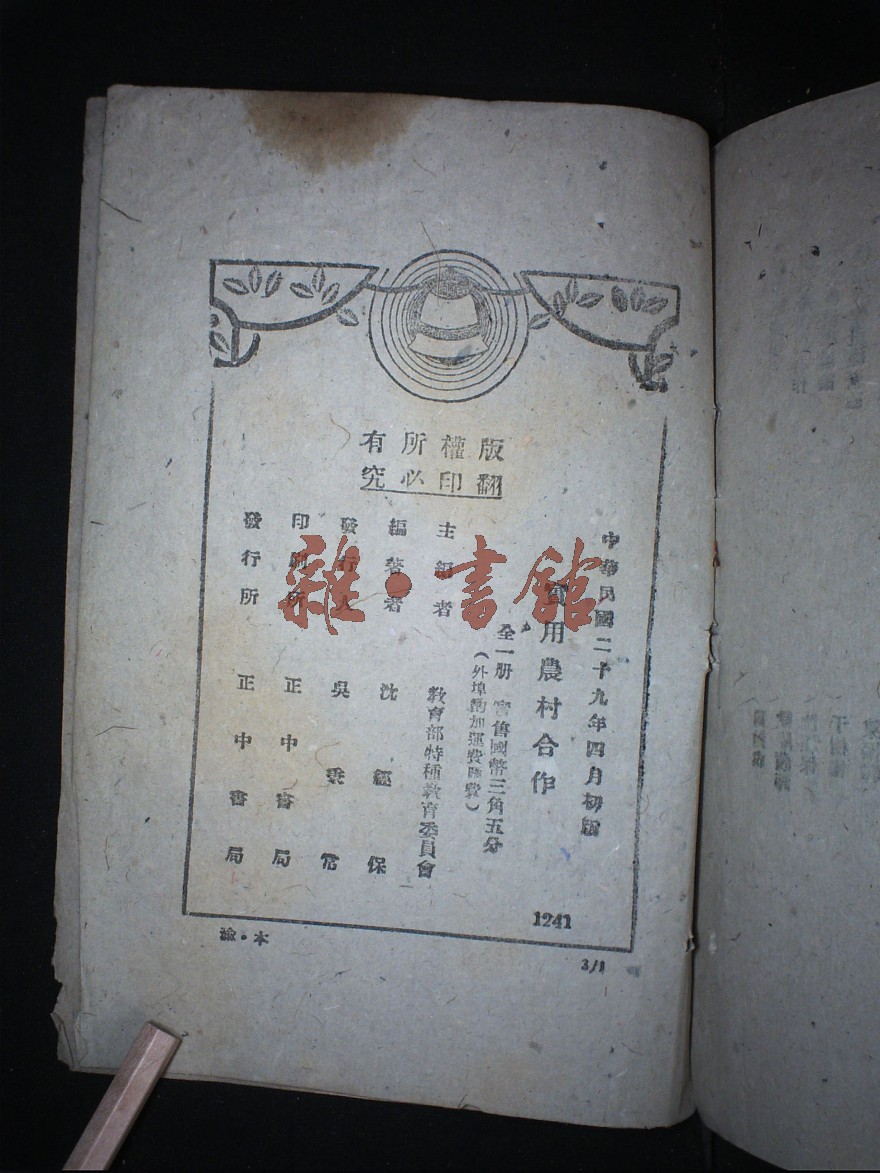 版權所有
翻印必究
中華民國二十九年四月初版
實用農村合作
全一册 實售國幣三角五分
(外埠酌加運費匯費)
主編者 教育部特種教育委員會
編著者 沈經保
發行人 吳秉常
印刷所 正中書局
發行所 正中書局
1241
渝・本
3/1
雜・書館